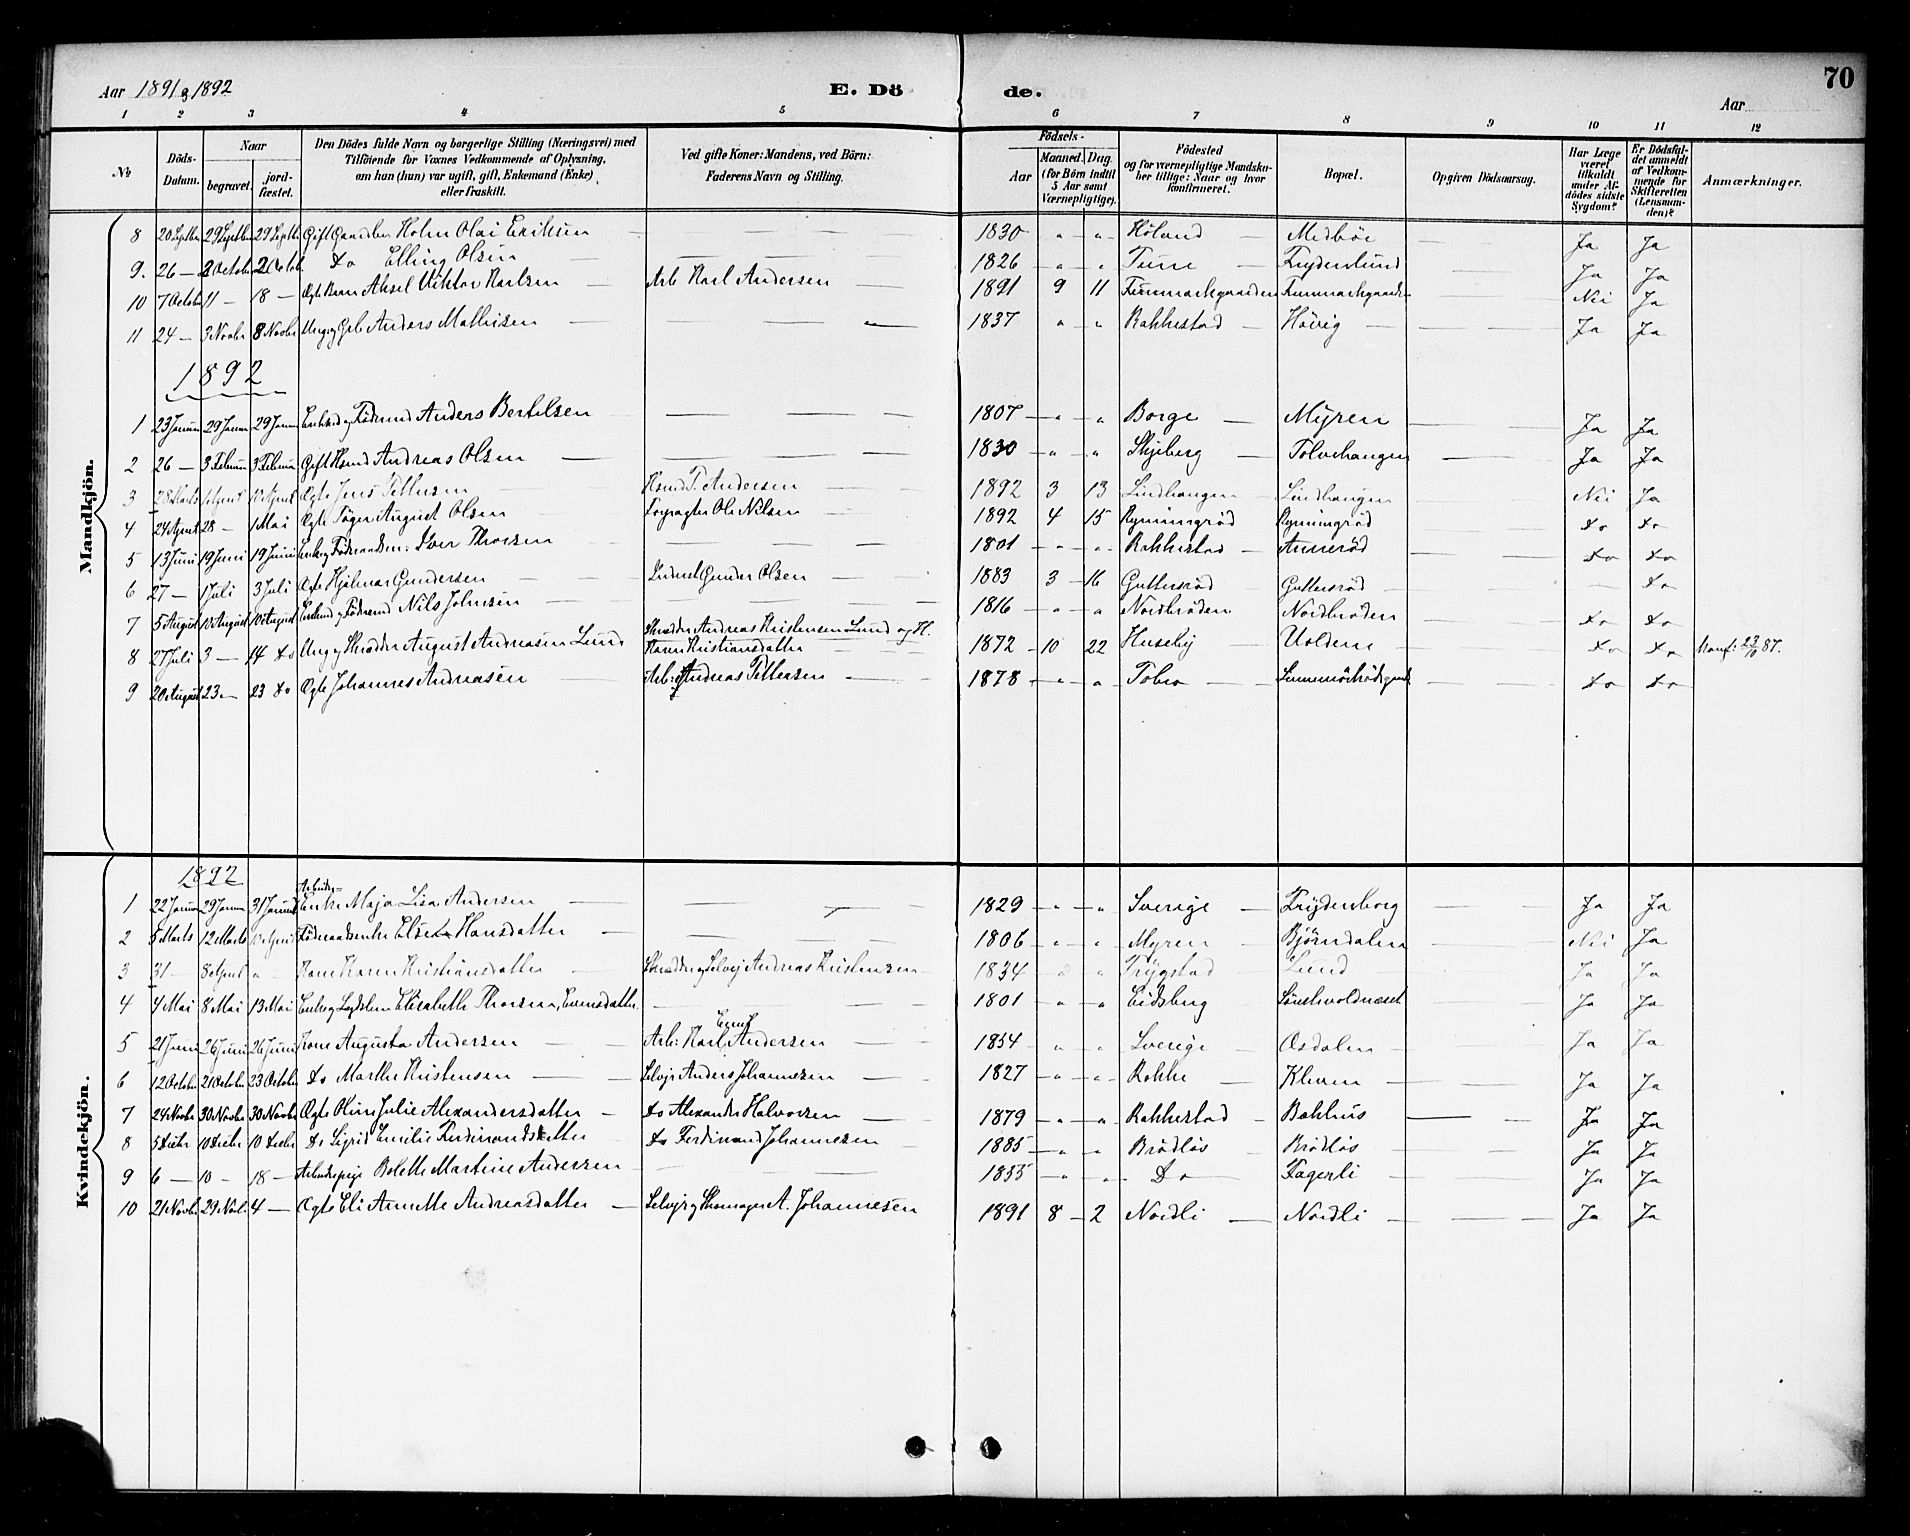 Aar 1891 & 1892 E. Dö de. Aar 70
1 2 3 4 5 6 7 8 9 10 11 12
No Döds-Datum. Naar begravet. jord-fæstet. Den Dödes fulde Navn og borgerlige Stilling (Næringsvei) med Tilföiende for Voxnes Vedkommende af Oplysning, om han (hun) var ugift, gift, Enkemand (Enke) eller fraskilt. Ved gifte Koner: Mandens, ved Börn: Faderens Navn og Stilling. Födsels- Aar Maaned. Dag. (for Börn indtil 5 Aar samt Værnepligtige). Födested og for værnepligtige Mandskaber tillige: Naar og hvor konfirmeret. Bopæl. Opgiven Dödsaarsag. Har Læge været tilkaldt under Afdödes sidste Sygdom? Er Dödsfaldet anmeldt af Vedkommende for Skifteretten (Lensmanden)? Anmærkninger.
Mandkjön.
8 20 Septbr 29 Septbr 29 Septbr Gift Gaardbr Holm Olai Eriksen 1830 " " Höland Medböe Ja Ja
9. 26 — 2 Octob 2 Octob Do Elling Olsen 1826 " " Tune Frydenlund Ja Ja
10 7 Octob 11 — 18 — Ægte Barn Aksel Viktor Karlsen Arb Karl Andersen 1891 9 11 Finmarkgaarden Finmarkgaarden Nei Ja
11 24 — 3 Novbr 8 Novbr Ung. Anders Mathisen 1837 " " Rakkestad Hövig Ja Ja
1892
1 23 Januar 29 Januar 29 Januar Enkem og Föderaad Anders Bertelsen 1807 " " Borge Myren Ja Ja
2 26 — 3 Februar 3 Februar Gift Hsmd Andreas Olsen 1830 " " Skjeberg Tolvehaugen Ja Ja
3 28 Marts April 10 April Ægte Jens Pettersen Husmd P. Andersen 1892 3 13 Lindhaugen Lindhaugen Nei Ja
4 24 April 28 — 1 Mai Ægte August Olsen Forpagter Ole Nilsen 1892 4 15 Rynningröd Rynningröd Do Do
5 13 Juni 19 Juni 19 Juni Iver Thorsen 1801 " " Rakkestad Anneröd Do Do
6 27 — 1 Juli 3 Juli Ægte Hjalmar Gundersen Gunder Olsen 1883 3 16 Guttersröd Guttersröd — Do
7 5 August 10 August 10 August Enkemd og Föderaad Nils Johnsen 1816 " " Nordbröden Nordbröden Do Do
8 27 Juli 3 — 14 Do Ung. Skrædder August Andreasen Lund Skrædder Andreas Kristensen Lund og H.
Karen Kristiansdatter 1872 10 22 Huseby Volden Do Do Konf: 23/10 87.
9 20 August 23 — 23 Do Ægte Johannes Andreasen Arb: Andreas Pettersen 1878 " " Tobro Do Do
Kvindekjön.
1892
1 22 Januar 29 Januar 31 Januar Arbeider-Enke Maja Lisa Andersen 1829 " " Sverige Frydenborg Ja Ja
2 5 Marts 12 Marts 10 April Föderaadsenke Else Hansdatter 1806 " " Myren Björndalen Nei Ja
3 31 — 8 April " Kone Karen Kristiansdatter Skrædder og Selvej Andreas Kristensen 1834 Trygstad Lund Ja Ja
4 4 Mai 8 Mai 13 Mai Enke og Elisabeth Thorsen, Evensdatter 1801 " " Eidsberg Ja Ja
5 21 Juni 26 Juni 26 Juni Kone Augusta Andersen Arb: Karl Emil Andersen 1854 " " Sverige Osdalen Ja Ja
6 12 Octobr 21 Octobr 23 Octobr Do Marthe Kristensen Selvejr Anders Johannesen 1827 " " Rokke Kleven Ja Ja
7 24 Novbr 30 Novbr 30 Novbr Ægte Oline Julie Alexandersdatter Do Alexander Halvorsen 1879 " " Rakkestad Bækhus Ja Ja
8 5 Decbr 10 Decbr 10 Decbr Do Sigrid Emilie Ferdinandsdatter Do Ferdinand Johannesen 1885 " " Brödlös Brödlös Ja Ja
9 6 — 10 — 18 — Arbeiderpige Bolette Martine Andersen 1855 " " Do Fagerli Ja Ja
10 21 Novbr 29 Novb. 4 — Ægte Eli Annette Andreasdatter Selvejr og Skomager A. Johannesen 1891 8 2 Nordli Nordli Ja Ja